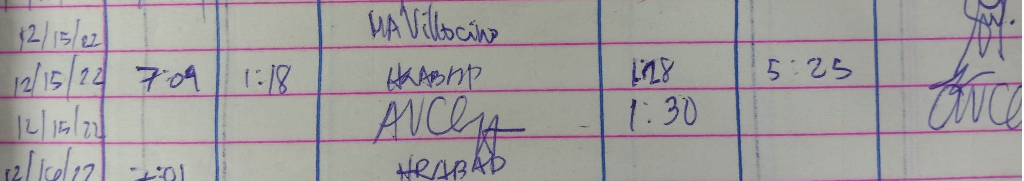 12/15/22 MAVillocino
12/15/22 7:09 1:18 HRABAD 1:28 5:25
12/15/22 1:30
12/16/22 7:01 HRABAD